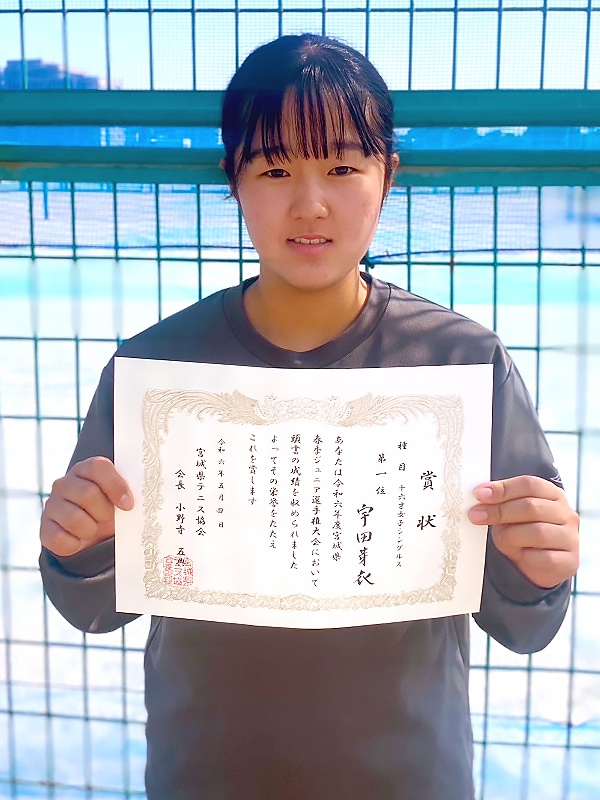 賞状
種目 十六才女子シングルス
第一位 宇田芽衣
あなたは令和六年度宮城県
春季ジュニア選手権大会において
頭書の成績を収められました
よってその栄誉をたたえ
これを賞します
令和六年五月四日
宮城県テニス協会
会長 小野寺 五典